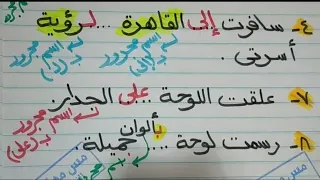 ٤- سافرت إلى القاهرة ... لرؤية
اسم مجرور
بـ(إلى)
اسم مجرور
أسرتي .
٧- علقت اللوحة على الجدار .
اسم مجرور
بـ(على)
٨- رسمت لوحة ... بألوان جميلة .